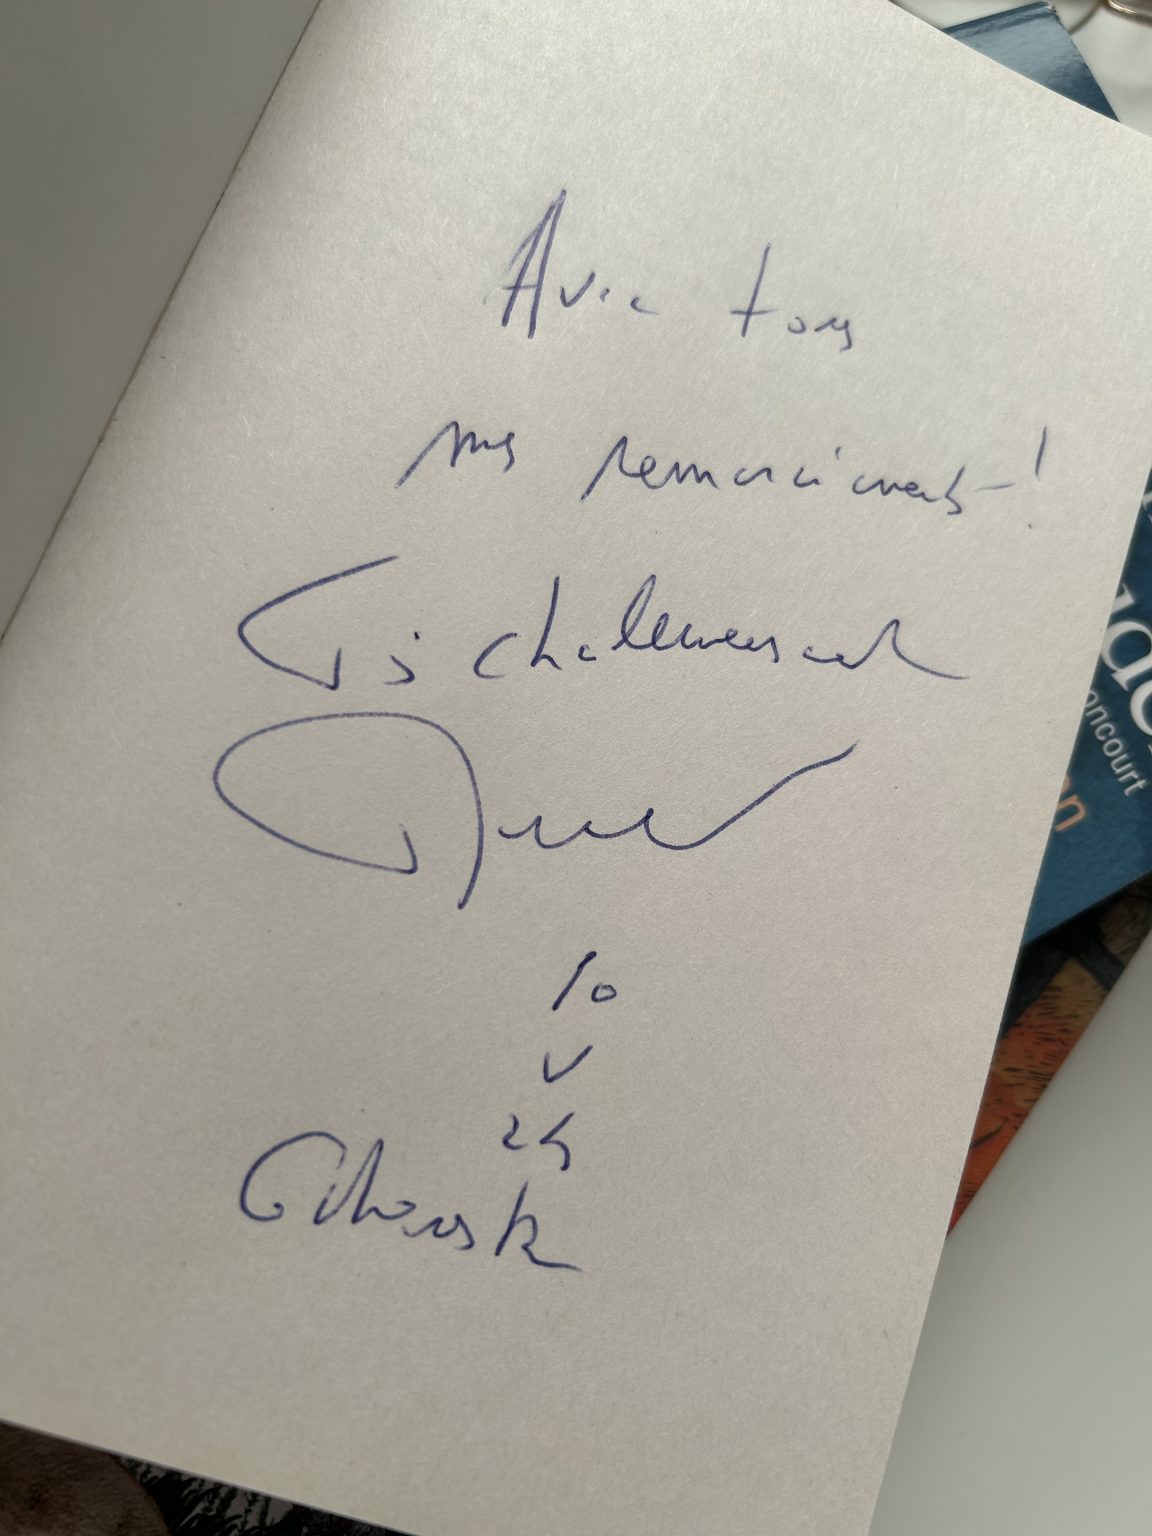 Avec tous
mes remerciements !
Très chaleureusement
10
V
24
oncourt